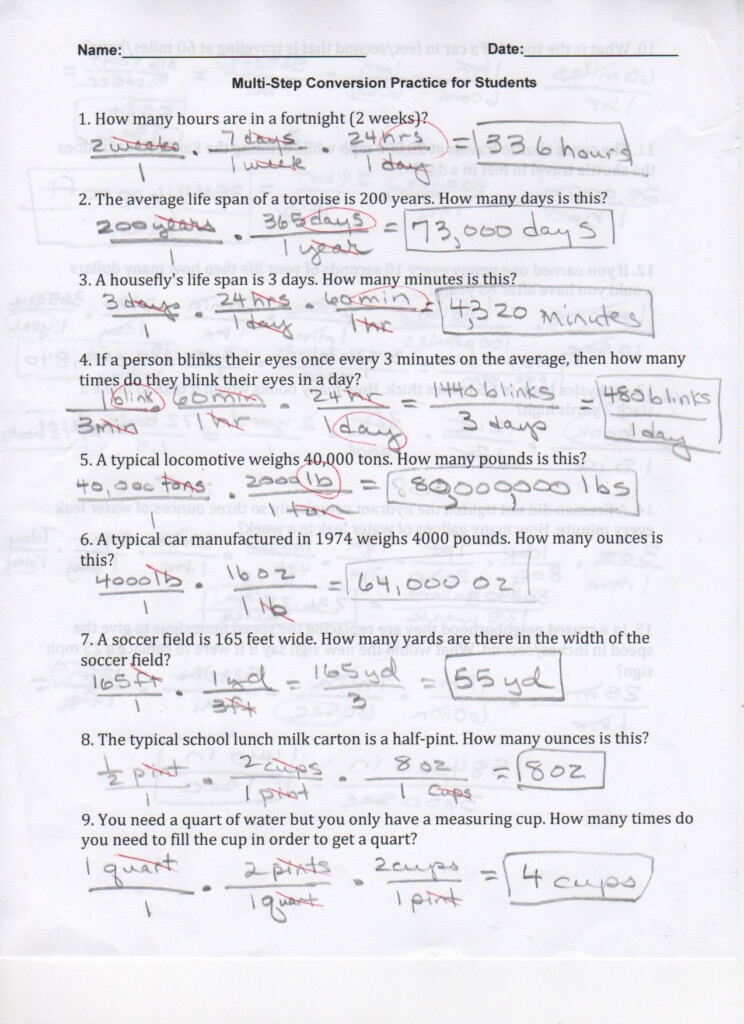 Name: Date:
Multi-Step Conversion Practice for Students
1. How many hours are in a fortnight (2 weeks)?
2 weeks/1 · 7 days/1 week · 24 hrs/1 day = 336 hours
2. The average life span of a tortoise is 200 years. How many days is this?
200 years/1 · 365 days/1 year = 73,000 days
3. A housefly's life span is 3 days. How many minutes is this?
3 days/1 · 24 hrs/1 day · 60 min/1 hr = 4,320 minutes
4. If a person blinks their eyes once every 3 minutes on the average, then how many
times do they blink their eyes in a day?
1 blink/3 min · 60 min/1 hr · 24 hr/1 day = 1440 blinks/3 days = 480 blinks/1 day
5. A typical locomotive weighs 40,000 tons. How many pounds is this?
40,000 tons/1 · 2000 lb/1 ton = 80,000,000 lbs
6. A typical car manufactured in 1974 weighs 4000 pounds. How many ounces is
this?
4000 lb/1 · 16 oz/1 lb = 64,000 oz
7. A soccer field is 165 feet wide. How many yards are there in the width of the
soccer field?
165 ft/1 · 1 yd/3 ft = 165 yd/3 = 55 yd
8. The typical school lunch milk carton is a half-pint. How many ounces is this?
1/2 pint/1 · 2 cups/1 pint · 8 oz/1 cups = 8 oz
9. You need a quart of water but you only have a measuring cup. How many times do
you need to fill the cup in order to get a quart?
1 quart/1 · 2 pints/1 quart · 2 cups/1 pint = 4 cups